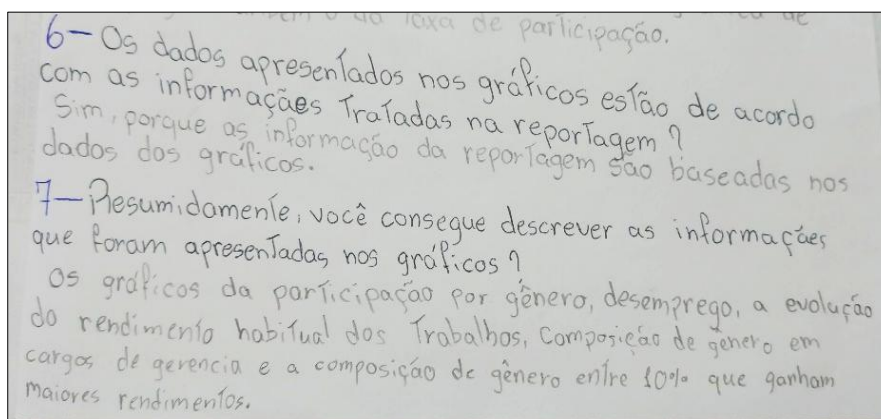 o da taxa de participação.
6- Os dados apresentados nos gráficos estão de acordo
com as informações tratadas na reportagem?
Sim, porque as informação da reportagem são baseadas nos
dados dos gráficos.
7- Resumidamente, você consegue descrever as informações
que foram apresentadas nos gráficos?
Os gráficos da participação por gênero, desemprego, a evolução
do rendimento habitual dos trabalhos, composição de gênero em
cargos de gerencia e a composição de gênero entre 10% que ganham
maiores rendimentos.